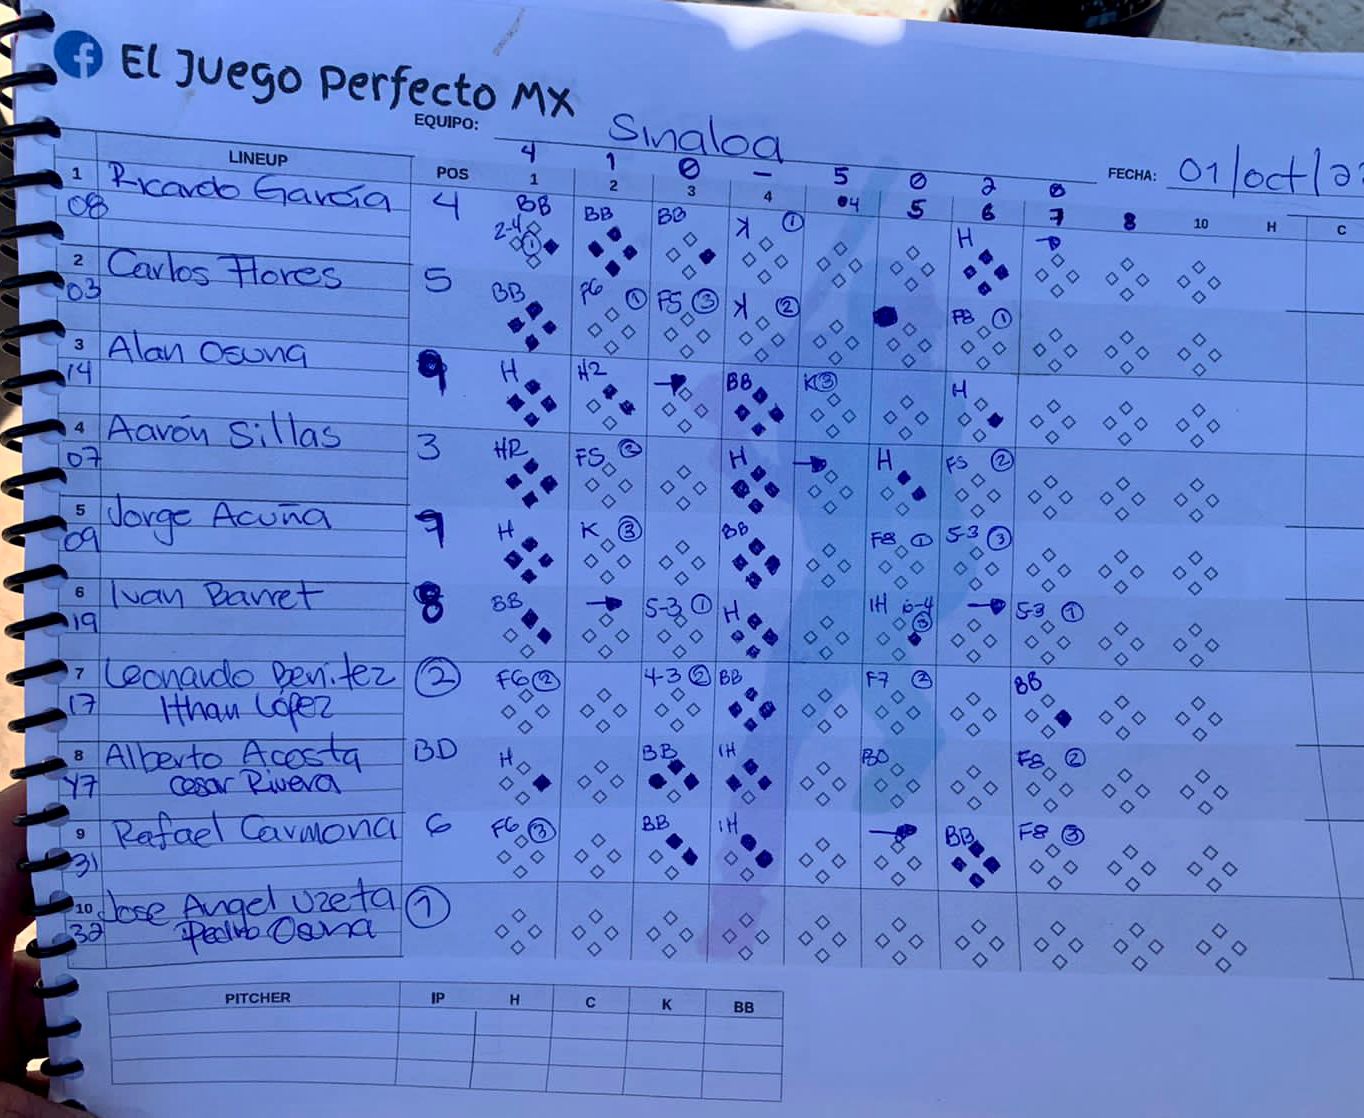 f El Juego Perfecto MX
EQUIPO: Sinaloa
FECHA: 01/oct/2
4 1 0 - 5 0 2 0
LINEUP POS 1 2 3 4 04 5 6 7 8 10 H C
1 Ricardo García 4 BB BB BB K ① H
08 2-4 ①
2 Carlos Flores 5 BB F6 ① F5 ③ K ② F8 ①
03
3 Alan Osuna 9 H H2 BB K ③ H
14
4 Aarón Sillas 3 HR F5 ② H H F5 ②
07
5 Jorge Acuña 9 H K ③ BB F8 ① 5-3 ③
09
6 Ivan Barret 8 BB 5-3 ① H IH 6-4 ③ 5-3 ①
19
7 Leonardo Benitez ② F6 ② 4-3 ② BB F7 ② BB
17 Ithan López
8 Alberto Acosta BD H BB IH BO F8 ②
Y7 Cesar Rivera
9 Rafael Carmona 6 F6 ③ BB IH BB F8 ③
31
10 Jose Angel Uzeta ①
32 Pedro Osuna
PITCHER IP H C K BB